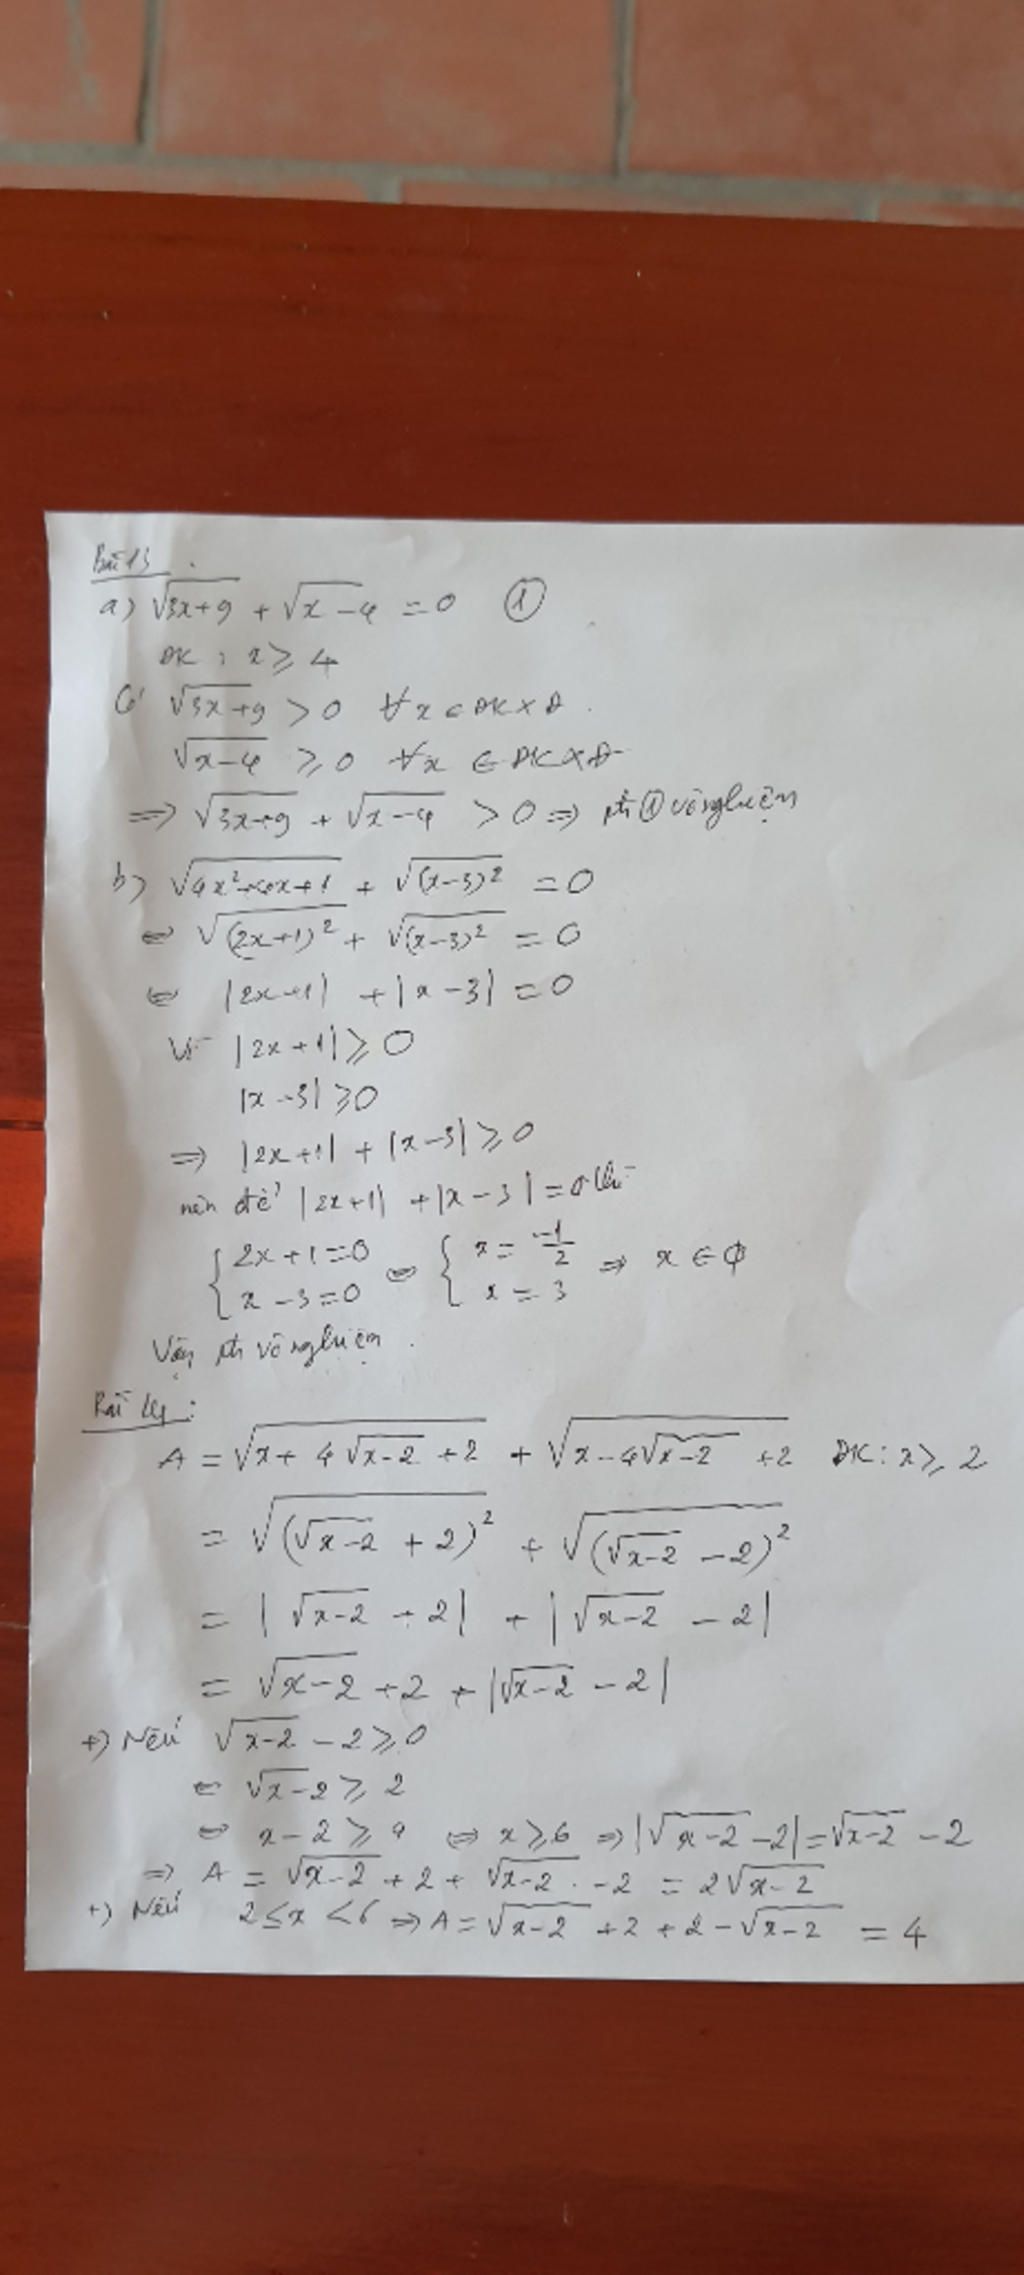 Bài 13.
a) √(3x+9) + √(x-4) = 0 ①
ĐK: x ≥ 4
Có √(3x+9) > 0 ∀x ∈ ĐKXĐ.
√(x-4) ≥ 0 ∀x ∈ ĐKXĐ
=> √(3x+9) + √(x-4) > 0 => pt ① vô nghiệm
b) √(4x²+4x+1) + √((x-3)²) = 0
⇔ √((2x+1)²) + √((x-3)²) = 0
⇔ |2x+1| + |x-3| = 0
Vì |2x+1| ≥ 0
|x-3| ≥ 0
=> |2x+1| + |x-3| ≥ 0
nên để |2x+1| + |x-3| = 0 thì
{ 2x+1=0 ⇔ { x = -1/2 => x ∈ ∅
{ x-3=0 { x = 3
Vậy pt vô nghiệm.
Bài 14:
A = √(x+4√(x-2)+2) + √(x-4√(x-2)+2) ĐK: x ≥ 2
= √((√(x-2)+2)²) + √((√(x-2)-2)²)
= |√(x-2)+2| + |√(x-2)-2|
= √(x-2)+2 + |√(x-2)-2|
+) Nếu √(x-2) - 2 ≥ 0
⇔ √(x-2) ≥ 2
⇔ x-2 ≥ 4 ⇔ x ≥ 6 => |√(x-2)-2| = √(x-2) - 2
=> A = √(x-2) + 2 + √(x-2) - 2 = 2√(x-2)
+) Nếu 2 ≤ x < 6 => A = √(x-2) + 2 + 2 - √(x-2) = 4